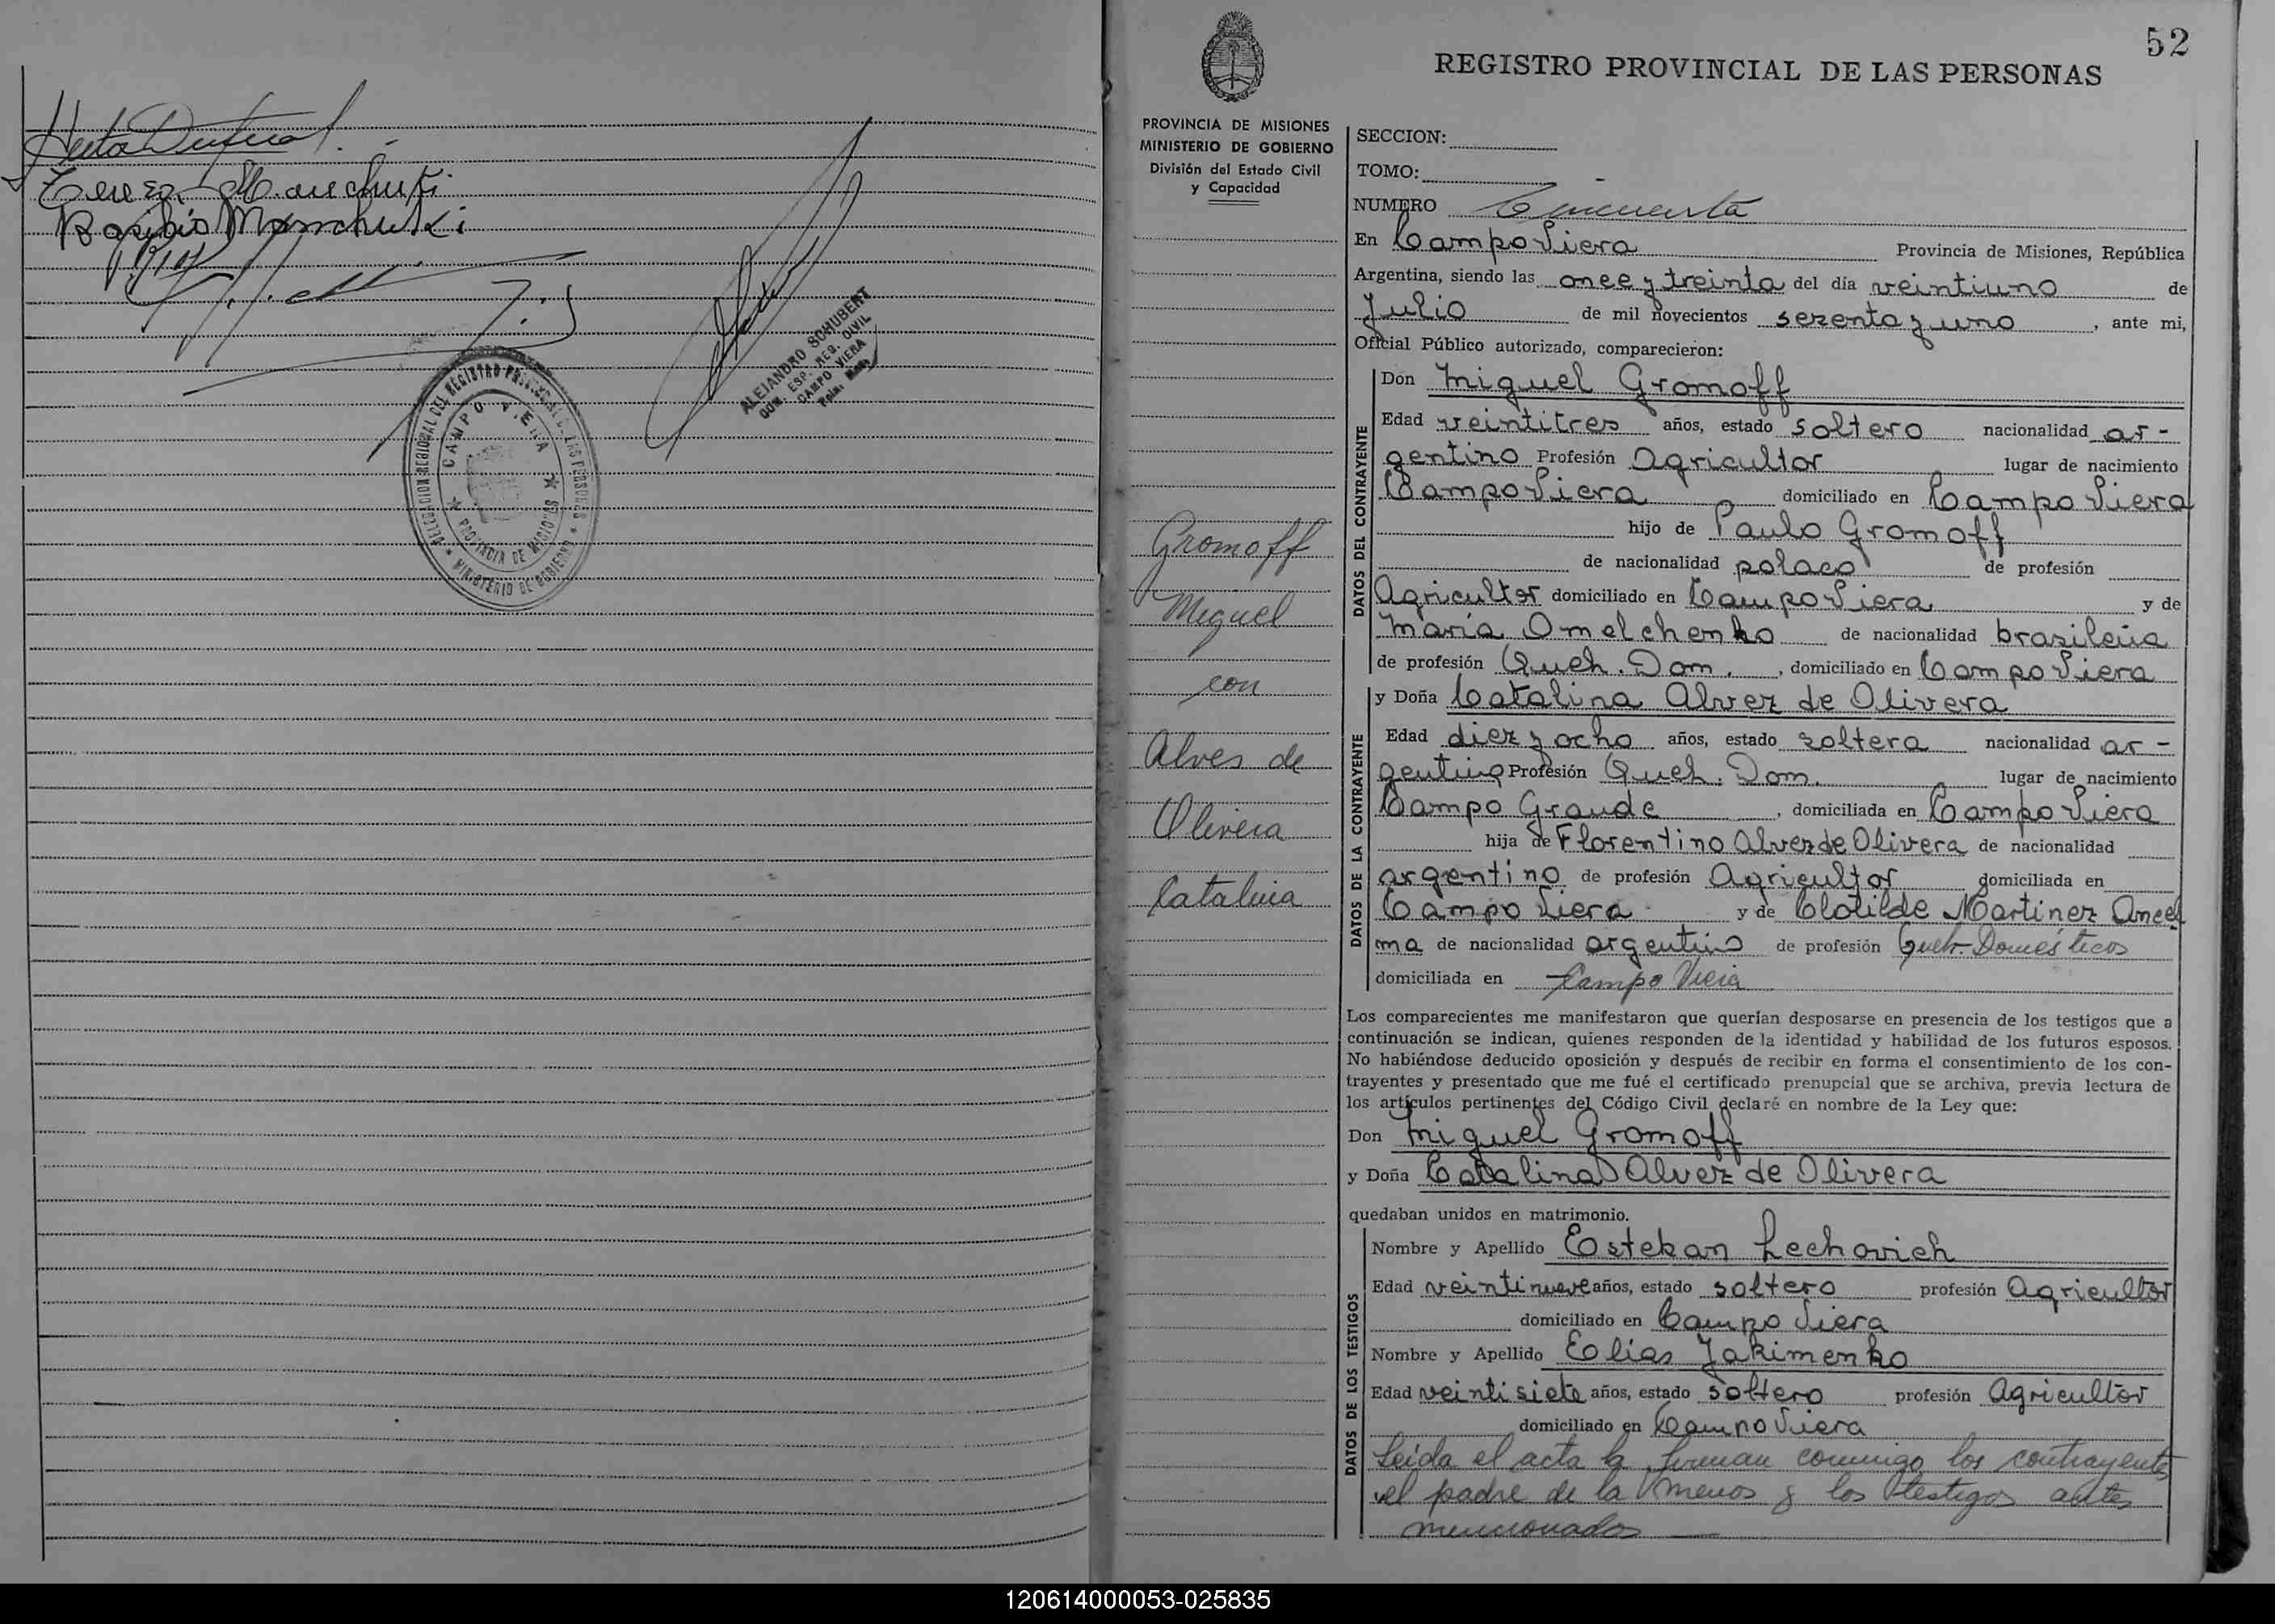 Basilio Manchuki
ALEJANDRO SCHUBERT
REG. CIVIL
CAMPO VIERA
CAMPO VIERA
PROVINCIA DE MISIONES
MINISTERIO DE GOBIERNO
52
REGISTRO PROVINCIAL DE LAS PERSONAS
PROVINCIA DE MISIONES
MINISTERIO DE GOBIERNO
División del Estado Civil
y Capacidad
Gromoff
Miguel
con
Alves de
Olivera
Catalina
SECCION:
TOMO:
NUMERO Cincuenta
En Campo Viera Provincia de Misiones, República
Argentina, siendo las once y treinta del día veintiuno de
Julio de mil novecientos sesenta y uno, ante mi,
Oficial Público autorizado, comparecieron:
DATOS DEL CONTRAYENTE
Don Miguel Gromoff
Edad veintitres años, estado soltero nacionalidad ar-
gentino Profesión Agricultor lugar de nacimiento
Campo Viera domiciliado en Campo Viera
hijo de Paulo Gromoff
de nacionalidad polaco de profesión
Agricultor domiciliado en Campo Viera y de
María Omelchenko de nacionalidad brasileña
de profesión Queh. Dom., domiciliado en Campo Viera
DATOS DE LA CONTRAYENTE
y Doña Catalina Alvez de Olivera
Edad diez y ocho años, estado soltera nacionalidad ar-
gentina Profesión Queh. Dom. lugar de nacimiento
Campo Grande, domiciliada en Campo Viera
hija de Florentino Alvez de Olivera de nacionalidad
argentino de profesión Agricultor domiciliada en
Campo Viera y de Clotilde Martinez Ancel
ma de nacionalidad argentina de profesión Queh. Domésticos
domiciliada en Campo Viera
Los comparecientes me manifestaron que querían desposarse en presencia de los testigos que a
continuación se indican, quienes responden de la identidad y habilidad de los futuros esposos.
No habiéndose deducido oposición y después de recibir en forma el consentimiento de los con-
trayentes y presentado que me fué el certificado prenupcial que se archiva, previa lectura de
los artículos pertinentes del Código Civil declaré en nombre de la Ley que:
Don Miguel Gromoff
y Doña Catalina Alvez de Olivera
quedaban unidos en matrimonio.
DATOS DE LOS TESTIGOS
Nombre y Apellido Esteban Lechovich
Edad veintinueve años, estado soltero profesión Agricultor
domiciliado en Campo Viera
Nombre y Apellido Elias Jakimenko
Edad veintisiete años, estado soltero profesión Agricultor
domiciliado en Campo Viera
Leida el acta la firman conmigo los contrayentes
el padre de la menor y los testigos antes
mencionados
120614000053-025835